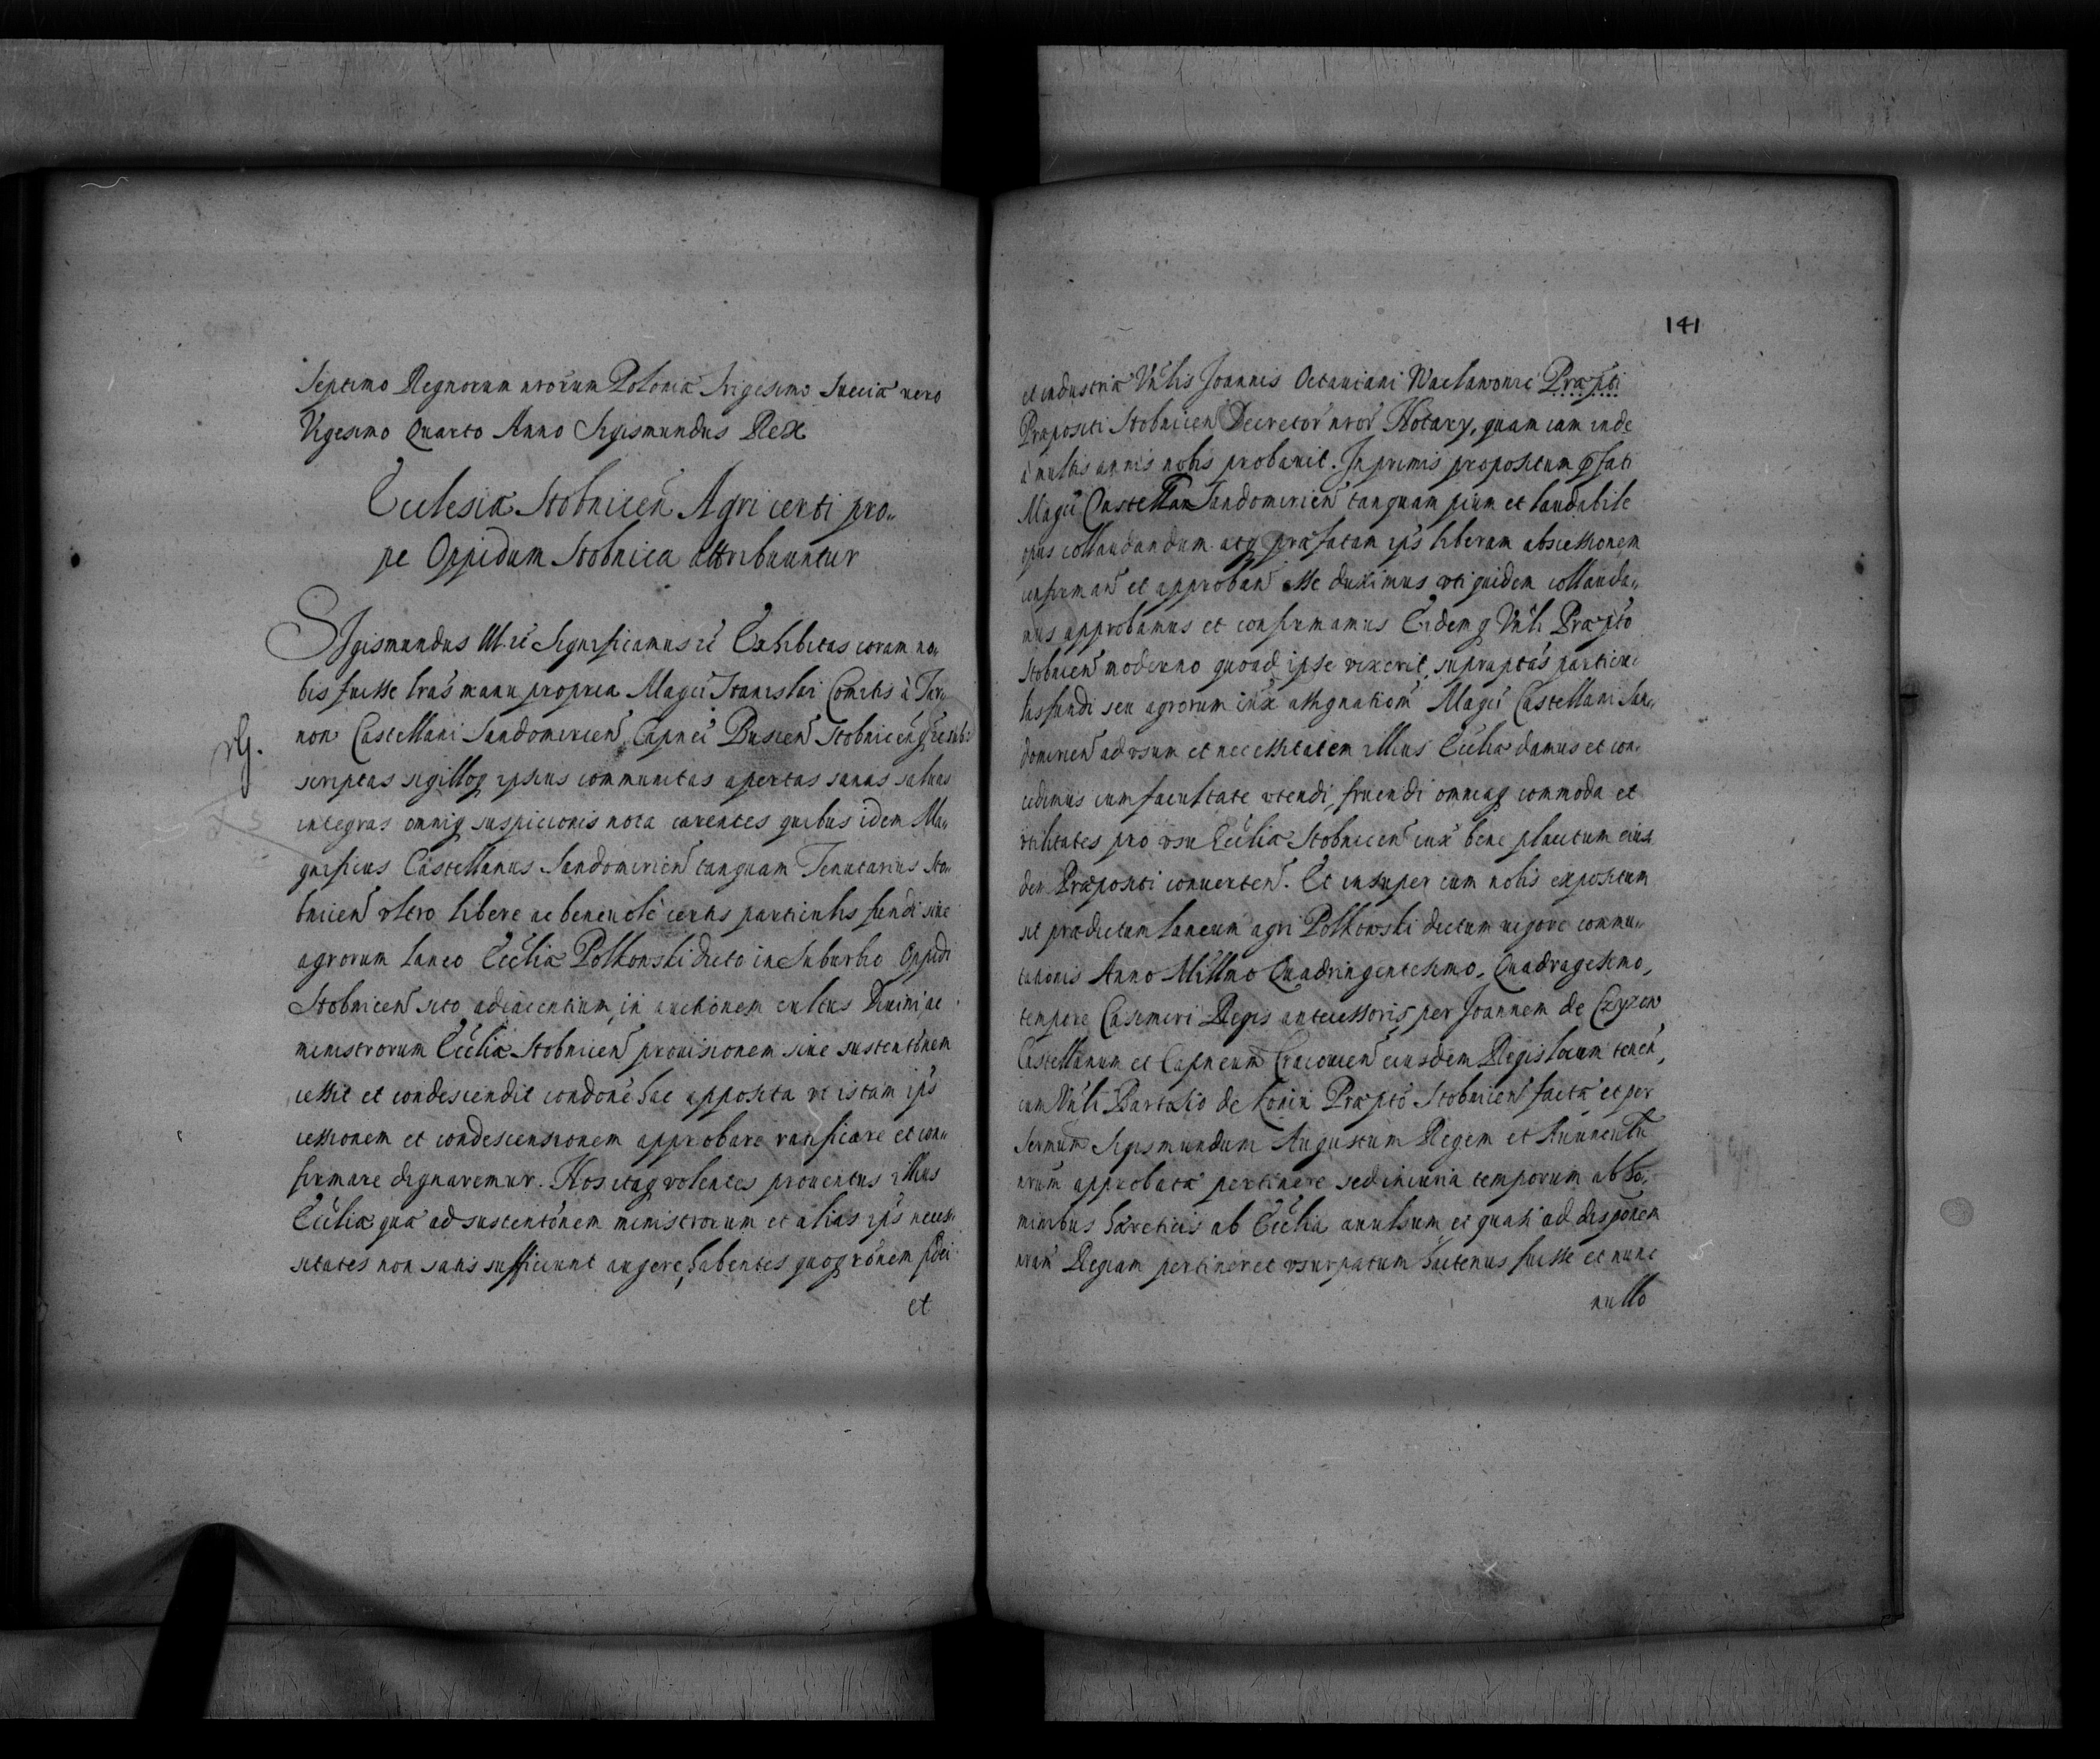 Septimo Regnorum nrorum Poloniæ Trigesimo Sueciæ vero
Vigesimo Quarto Anno Sigismundus Rex
Ecclesiæ Stobnicen Agri certi pro„
pe Oppidum Stobnica attribuuntur
SIgismundus III. etc Significamus etc Exhibitas coram no„
bis fuisse lras manu propria Magci Stanislai Comitis à Tar„
non Castellani Sandomirien, Capnei Buscen Stobnicenq etc sub„
rG.
scriptas sigilloq ipsius communitas apertas sanas saluas
integras omniq suspicionis nota carentes quibus idem Ma„
gnificus Castellanus Sandomirien tanquam Tenutarius Sto„
bnicen vltro libere ac beneuole certis particulis fundi siue
agrorum laneo Eccliæ Polkowski dicto in Suburbio Oppidi
Stobnicen sito adiacentium, in auctionem cultus Diuini ac
ministrorum Eccliæ Stobnicen prouisionem siue sustentonem
cessit et condescendit condone hac apposita vt istam ips
cessionem et condescensionem approbare ratificare et con„
firmare dignaremur. Nos itaq volentes prouentus illius
Eccliæ qua ad sustentonem ministrorum et alias ips necess„
sitates non satis sufficiunt augere, habentes quoq ronem fidei
et
141
et industriæ Vnlis Joannis Octauiani Waclawowic Præpti
Præpositi Stobnicen Decretor nror Notary, quam eam inde
à multis annis nobis probauit. Inprimis propositum pfati
Magci Castellan Sandomirien tanquam pium et laudabile
opus collaudandum atq præfatam ips liberam abscessionem
confirman et approban esse duximus vti quidem collauda„
mus approbamus et confirmamus Eidemq Vnli Præpto
Stobnicen moderno quoad ipse vixerit, supraptas particu„
las fundi seu agrorum iux assignatiom Magci Castellani San„
domirien ad vsum et necessitatem illius Eccliæ damus et con„
cedimus cum facultate vtendi, fruendi omniaq commoda et
vtilitates pro vsu Eccliæ Stobnicen iux bene placitum eius
dem Præpositi conuerten. Et insuper cum nobis expositum
sit prædictum laneum agri Polkowski dictum vigore commu„
tationis Anno Millmo Quadringentesimo, Quadragesimo,
tempore Casimiri Regis antecessoris per Joannem de Czyzow
Castellanum et Capneum Cracouien eiusdem Regis locum tenen,
cum Vnli Bartosio de Konin Præpto Stobnicen facta et per
Sermum Sigismundum Augustum Regem et Auunculu
nrum approbata pertinere sed iniuria temporum ab ho„
minibus hæreticis ab Ecclia auulsum et quasi ad disponem
nram Regiam pertineret vsurpatum hactenus fuisse et nunc
nullo